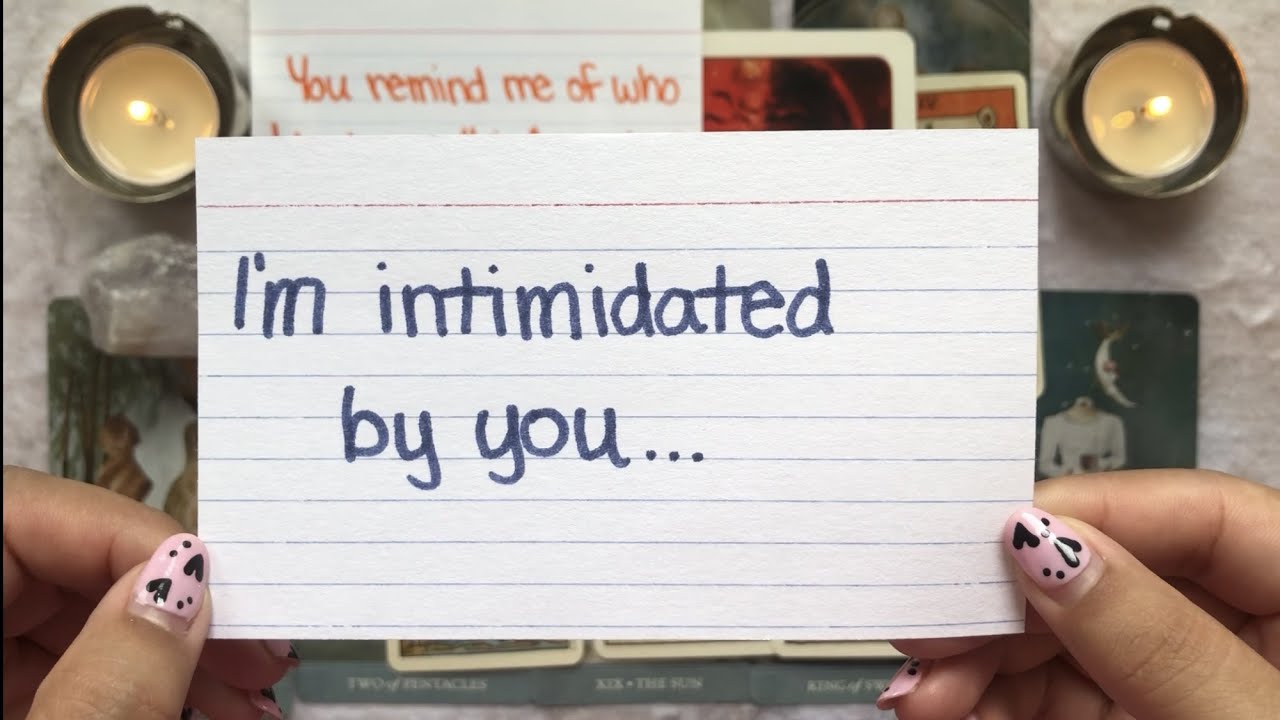 You remind me of who
I'm intimidated
by you...
TWO of PENTACLES
XIX • THE SUN
KING of